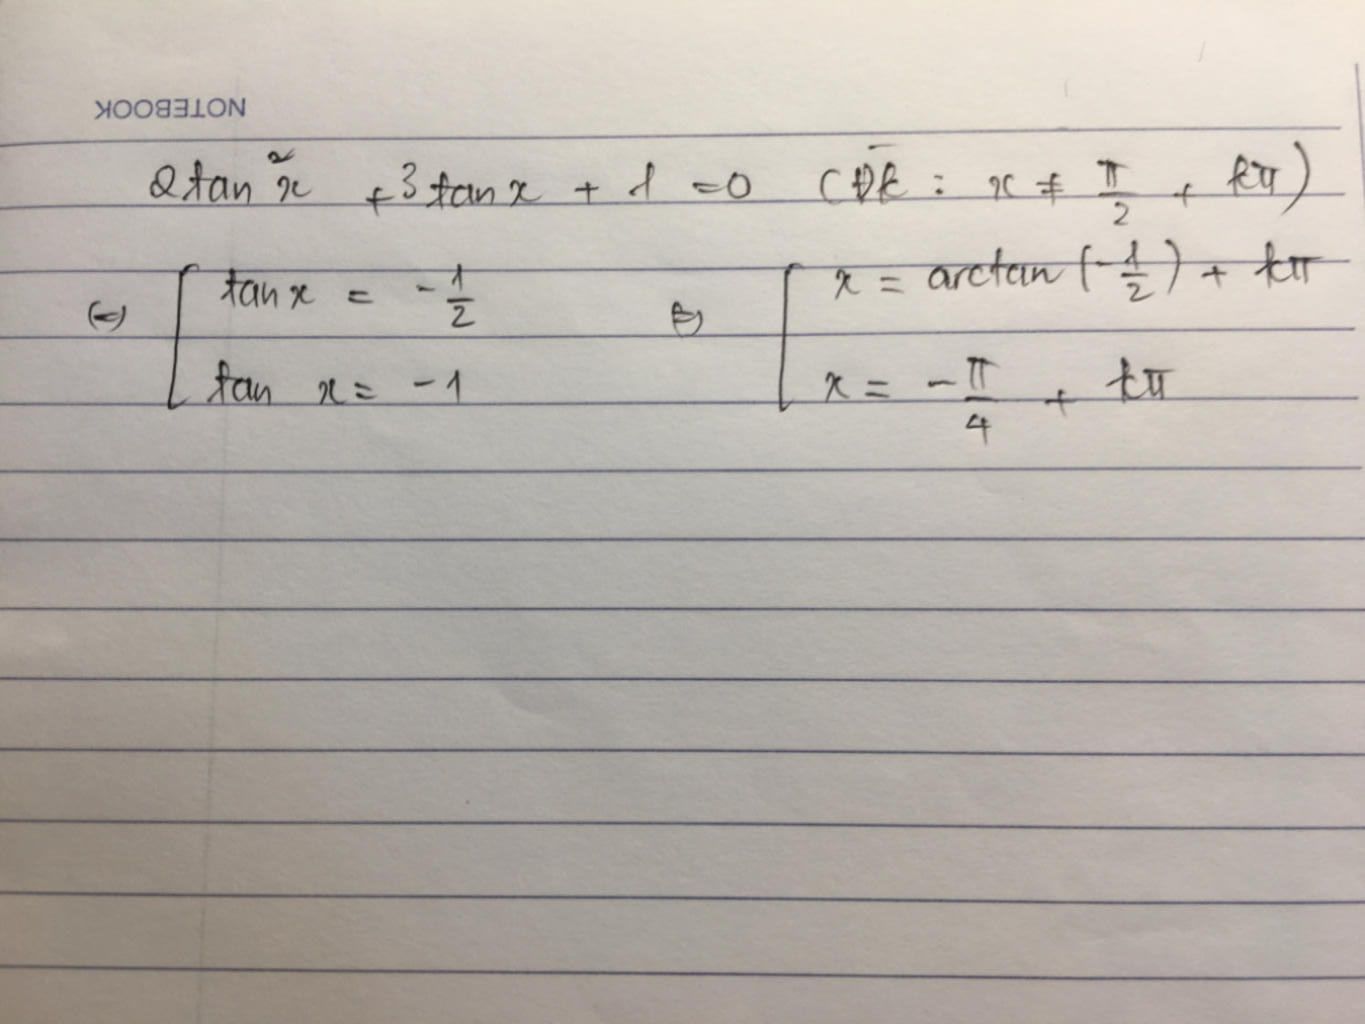 NOTEBOOK
2tan²x + 3tanx + 1 = 0 (ĐK : x ≠ π/2 + kπ)
⇔ [ tanx = -1/2 ⇔ [ x = arctan(-1/2) + kπ
tan x = -1 x = -π/4 + kπ